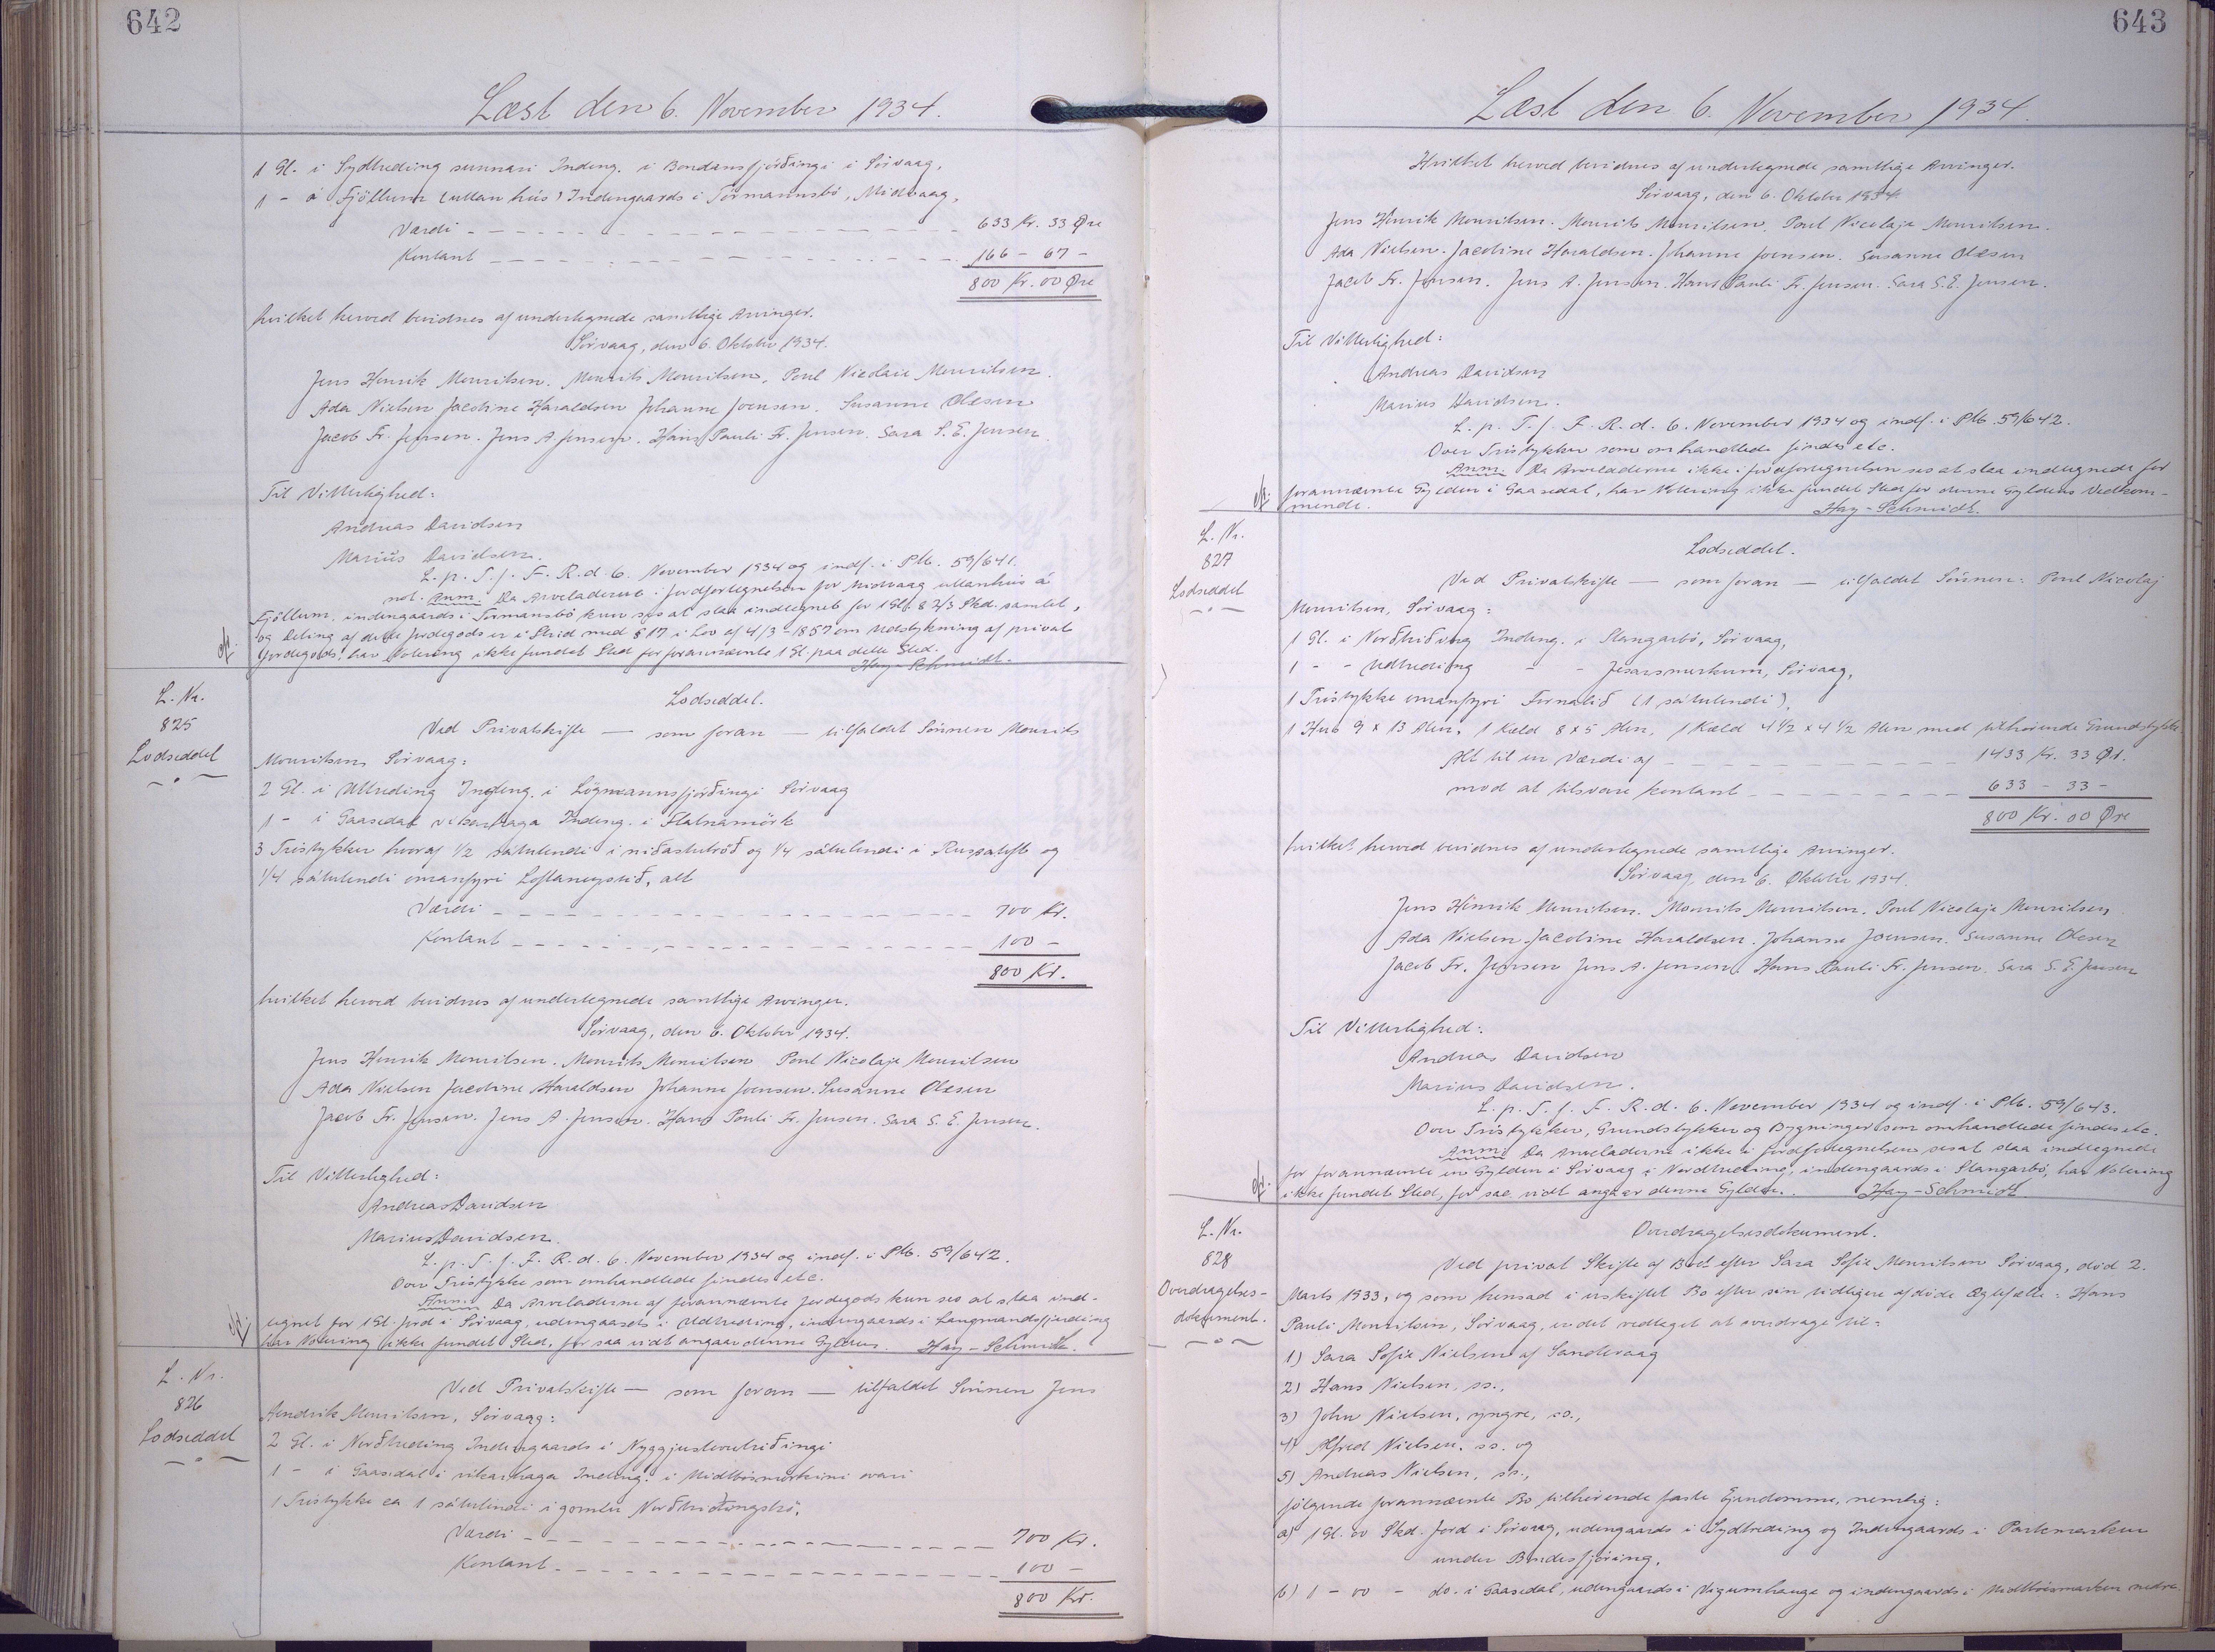 642
Læst den 6. November 1934.
1 Gl. i Sydtreding sunnari Indeng. i Bondansfjórðingi i Sörvaag,
1 - á Fjöllum (uttan hús) Indengaards i Tormannsbö, Midvaag,
Værdi 633 Kr. 33 Øre
Kontant 166 - 67 -
800 Kr. 00 Øre
hvilket herved bevidnes af underlegnede samtlige Arvinger.
Sörvaag, den 6. Oktober 1934.
Jens Henrik Mouritsen. Mourits Mouritsen, Poul Nicolaie Mouritsen.
Ada Nielsen Jacobine Haraldsen Johanne Joensen. Susanne Olesen
Jacob Fr. Jensen. Jens A. Jensen. Hans Pauli Fr. Jensen. Sara S. E. Jensen.
Til Vitterlighed:
Andreas Davidsen
Marius Davidsen.
L. p. T. f. F. R. d. 6. November 1934 og indf. i Ptb. 59/641.
not. Anm. Da Arveladerne i Jordfortegnelsen for Midvaag uttanhús á
Fjöllum, indengaards i Tormansbö kun ses at staa indtegnet for 1 Gl. 8 2/3 Skd. samlet,
og Deling af dette Jordegods er i Strid med § 17 i Lov af 4/3-1857 om Udstykning af privat
Jordegods, har Notering ikke fundet Sted for forannævnte 1 Gl. paa dette Sted.
Hay-Schmidt.
L. Nr.
825
Lodseddel
Lodseddel.
Ved Privatskifte — som foran — tilfaldet Sönnen Mourits
Mouritsen, Sörvaag:
2 Gl. i Uttreding Indeng. i Lögmannsfjórðingi Sörvaag
1 - i Gaasedal vikarhaga Indeng. i Flatnamörk
3 Tristykker hvoraf 1/2 sátulendi i niðastutröð og 1/4 sátulendi i og
1/4 sátulendi omanfyri alt
Værdi 700 Kr.
Kontant 100 -
800 Kr.
hvilket herved bevidnes af underlegnede samtlige Arvinger.
Sörvaag, den 6. Oktober 1934.
Jens Henrik Mouritsen. Mourits Mouritsen Poul Nicolaje Mouritsen
Ada Nielsen Jacobine Haraldsen Johanne Joensen. Susanne Olesen
Jacob Fr. Jensen. Jens A. Jensen. Hans Pauli Fr. Jensen. Sara S. E. Jensen.
Til Vitterlighed:
Andreas Davidsen
Marius Davidsen.
L. p. T. f. F. R. d. 6. November 1934 og indf. i Ptb. 59/642.
Over Tristykke som omhandlede findes etc.
Anm. Da Arveladerne af forannævnte Jordegods kun ses at staa ind-
tegnet for 1 Gl. Jord i Sörvaag, udengaards i Udtreding, indengaards i Laugmandsfjerding
har Notering ikke fundet Sted, for saa vidt angaar denne Gylden. Hay-Schmidt.
L. Nr.
826
Lodseddel
Ved Privatskifte — som foran — tilfaldet Sönnen Jens
Hendrik Mouritsen, Sörvaag:
2 Gl. i Norðtreding Indengaards i
1 - i Gaasedal i vikarhaga Indeng. i Midtbösmerkini ovari
1 Tristykke ca 1 sátulendi i gomlu
Værdi 700 Kr.
Kontant 100 -
800 Kr.
643
Læst den 6. November 1934.
Hvilket herved bevidnes af underlegnede samtlige Arvinger.
Sörvaag, den 6. Oktober 1934.
Jens Henrik Mouritsen. Mourits Mouritsen. Poul Nicolaja Mouritsen.
Ada Nielsen. Jacobine Haraldsen. Johanne Joensen. Susanne Olesen
Jacob Fr. Jensen. Jens A. Jensen. Hans Pauli Fr. Jensen. Sara S. E. Jensen.
Til Vitterlighed:
Andreas Davidsen
Marius Davidsen.
L. p. T. f. F. R. d. 6. November 1934 og indf. i Ptb. 59/642.
Over Tristykker som omhandlede findes etc.
Anm. Da Arveladerne ikke i Jordfortegnelsen ses at staa indtegnede for
forannævnte Gylden i Gaasedal, har Notering ikke fundet Sted for denne Gyldens Vedkom-
mende. Hay-Schmidt.
L. Nr.
827
Lodseddel
Lodseddel.
Ved Privatskifte — som foran — tilfaldet Sönnen: Poul Nicolaj
Mouritsen, Sörvaag:
1 Gl. i Norðtriðung Indeng. i Slangarbö, Sörvaag,
1 - - Udtreding - - Jesarsmerkum, Sörvaag,
1 Tristykke omanfyri (1 sátulendi),
1 Hus 9 x 13 Alen, 1 Kæld 8 x 5 Alen, 1 Kæld 4 1/2 x 4 1/2 Alen med tilhörende Grundstykke
Alt til en Værdi af 1433 Kr. 33 Ør.
mod at tilsvare kontant 633 - 33 -
800 Kr. 00 Øre
hvilket herved bevidnes af underlegnede samtlige Arvinger.
Sörvaag, den 6. Oktober 1934.
Jens Henrik Mouritsen. Mourits Mouritsen. Poul Nicolaja Mouritsen
Ada Nielsen. Jacobine Haraldsen. Johanne Joensen. Susanne Olesen
Jacob Fr. Jensen Jens A. Jensen. Hans Pauli Fr. Jensen. Sara S. E. Jensen
Til Vitterlighed:
Andreas Davidsen
Marius Davidsen.
L. p. T. f. F. R. d. 6. November 1934 og indf. i Ptb. 59/643.
Over Tristykker, Grundstykker og Bygninger som omhandlede findes etc.
Anm. Da Arveladerne ikke i Jordfortegnelsen ses at staa indtegnede
for forannævnte en Gylden i Sörvaag i Nordtreding, indengaards i Slangarbö, har Notering
ikke fundet Sted, for saa vidt angaar denne Gylden. Hay-Schmidt
L. Nr.
828
Overdragelses-
dokument.
Overdragelsesdokument.
Ved privat Skifte af Boet efter Sara Sofie Mouritsen Sörvaag, död 2.
Marts 1933, og som hensad i uskiftet Bo efter sin tidligere afdöde Ægtefælle: Hans
Pauli Mouritsen, Sörvaag, er det vedtaget at overdrage til:
1) Sara Sofie Nielsen af Sandevaag
2) Hans Nielsen, ss.,
3) John Nielsen, yngre, ss.,
4) Alfred Nielsen, ss. og
5) Andreas Nielsen, ss.,
fölgende forannævnte Bo tilhörende faste Ejendomme, nemlig:
a) 1 Gl. 00 Skd. Jord i Sörvaag, udengaards i Sydtreding og Indengaards i Parkmarken
under Bondesfjöring,
b) 1 - 00 - do. i Gaasedal, udengaards i Vigumhauge og indengaards i Midtbösmarken nedre